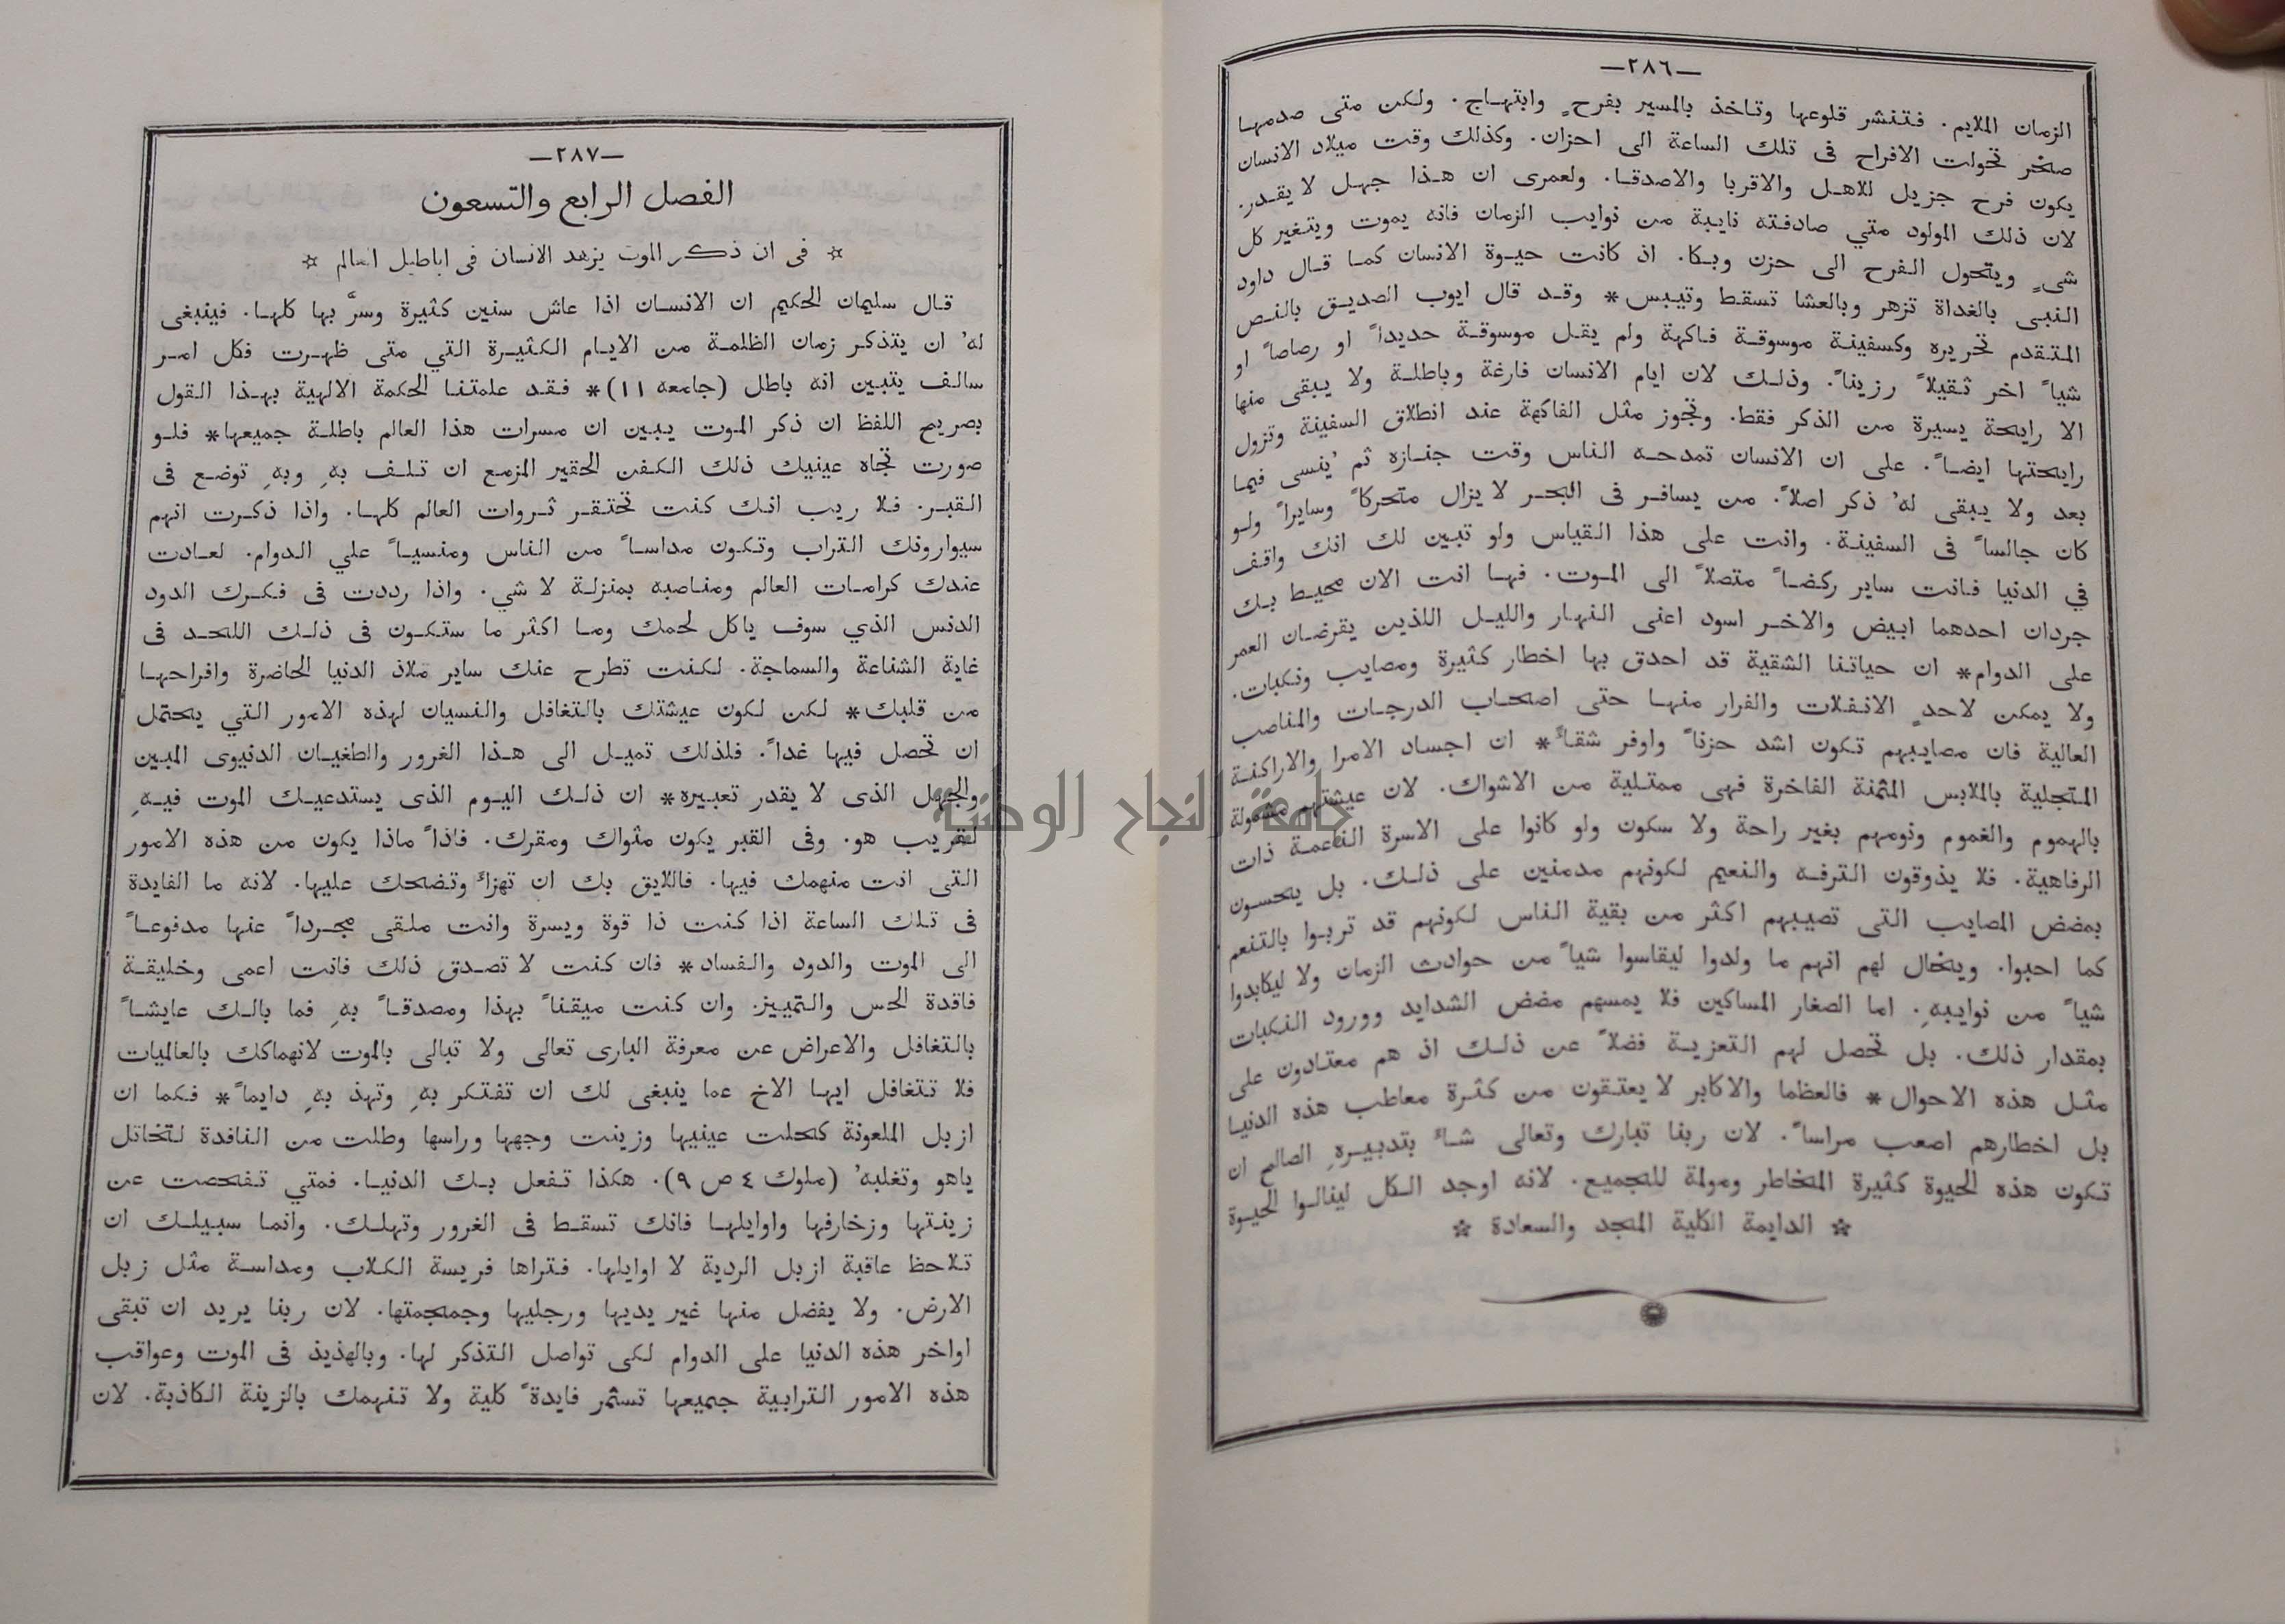 —٢٨٦—
الزمان الملايم. فتنشر قلوعها وتاخذ بالمسير بفرحٍ وابتهاج. ولكن متى صدمها
صخر تحولت الافراح فى تلك الساعة الى احزان. وكذلك وقت ميلاد الانسان
يكون فرح جزيل للاهل والاقربا والاصدقا. ولعمرى ان هذا جهل لا يقدر.
لان ذلك المولود متي صادفته نايبة من نوايب الزمان فانه يموت ويتغير كل
شىٍ ويتحول الفرح الى حزن وبكا. اذ كانت حيوة الانسان كما قال داود
النبى بالغداة تزهر وبالعشا تسقط وتيبس* وقد قال ايوب الصديق بالنص
المتقدم تحريره وكسفينة موسوقة فاكهة ولم يقل موسوقة حديداً او رصاصاً او
شياً اخر ثقيلاً رزيناً. وذلك لان ايام الانسان فارغة وباطلة ولا يبقى منها
الا رايحة يسيرة من الذكر فقط. وتجوز مثل الفاكهة عند انطلاق السفينة وتزول
رايحتها ايضاً. على ان الانسان تمدحه الناس وقت جنازه ثم يُنسى فيما
بعد ولا يبقى لهُ ذكر اصلاً. من يسافر فى البحر لا يزال متحركاً وسايراً ولو
كان جالساً فى السفينة. وانت على هذا القياس ولو تبين لك انك واقف
في الدنيا فانت ساير ركضاً متصلاً الى الموت. فها انت الان محيط بك
جردان احدهما ابيض والاخر اسود اعنى النهار والليل اللذين يقرضان العمر
على الدوام* ان حياتنا الشقية قد احدق بها اخطار كثيرة ومصايب ونكبات.
ولا يمكن لاحدٍ الانفلات والفرار منها حتى اصحاب الدرجات والمناصب
العالية فان مصايبهم تكون اشد حزناً واوفر شقاً* ان اجساد الامرا والاراكنة
المتجلية بالملابس المثمنة الفاخرة فهى ممتلية من الاشواك. لان عيشتهم مشمولة
بالهموم والغموم ونومهم بغير راحة ولا سكون ولو كانوا على الاسرة الناعمة ذات
الرفاهية. فلا يذوقون الترفه والنعيم لكونهم مدمنين على ذلك. بل يحسون
بمضض المصايب التى تصيبهم اكثر من بقية الناس لكونهم قد تربوا بالتنعم
كما احبوا. ويخال لهم انهم ما ولدوا ليقاسوا شياً من حوادث الزمان ولا ليكابدوا
شياً من نوايبهِ. اما الصغار المساكين فلا يمسهم مضض الشدايد وورود النكبات
بمقدار ذلك. بل تحصل لهم التعزية فضلاً عن ذلك اذ هم معتادون على
مثل هذه الاحوال* فالعظما والاكابر لا يعتقون من كثرة معاطب هذه الدنيا
بل اخطارهم اصعب مراساً. لان ربنا تبارك وتعالى شاً بتدبيرهِ الصالح ان
تكون هذه الحيوة كثيرة المخاطر ومولمة للجميع. لانه اوجد الكل لينالوا الحيوة
☆ الدايمة الكلية المجد والسعادة ☆
—٢٨٧—
الفصل الرابع والتسعون
☆ فى ان ذكر الموت يزهد الانسان فى اباطيل العالم ☆
قال سليمان الحكيم ان الانسان اذا عاش سنين كثيرة وسرَّ بها كلها. فينبغى
لهُ ان يتذكر زمان الظلمة من الايام الكثيرة التي متى ظهرت فكل امر
سالف يتبين انه باطل (جامعه ١١)* فقد علمتنا الحكمة الالهية بهذا القول
بصريح اللفظ ان ذكر الموت يبين ان مسرات هذا العالم باطلة جميعها* فلو
صورت تجاه عينيك ذلك الكفن الحقير المزمع ان تلف بهِ وبهِ توضع فى
القبر. فلا ريب انك كنت تحتقر ثروات العالم كلها. واذا ذكرت انهم
سيوارونك التراب وتكون مداساً من الناس ومنسياً علي الدوام. لعادت
عندك كرامات العالم ومناصبه بمنزلة لا شي. واذا رددت فى فكرك الدود
الدنس الذي سوف ياكل لحمك وما اكثر ما ستكون فى ذلك اللحد فى
غاية الشناعة والسماجة. لكنت تطرح عنك ساير ملاذ الدنيا الحاضرة وافراحها
من قلبك* لكن لكون عيشتك بالتغافل والنسيان لهذه الامور التي يحتمل
ان تحصل فيها غداً. فلذلك تميل الى هذا الغرور والطغيان الدنيوى المبين
والجهل الذى لا يقدر تعبيره* ان ذلك اليوم الذى يستدعيك الموت فيهِ
لقريب هو. وفى القبر يكون مثواك ومقرك. فاذاً ماذا يكون من هذه الامور
التى انت منهمك فيها. فاللايق بك ان تهزأ وتضحك عليها. لانه ما الفايدة
فى تلك الساعة اذا كنت ذا قوة ويسرة وانت ملقى مجرداً عنها مدفوعاً
الى الموت والدود والفساد* فان كنت لا تصدق ذلك فانت اعمى وخليقة
فاقدة الحس والتمييز. وان كنت ميقناً بهذا ومصدقاً بهِ فما بالك عايشاً
بالتغافل والاعراض عن معرفة البارى تعالى ولا تبالى بالموت لانهماكك بالعالميات
فلا تتغافل ايها الاخ عما ينبغى لك ان تفتكر بهِ وتهذ بهِ دايماً* فكما ان
ازبل الملعونة كحلت عينيها وزينت وجهها وراسها وطلت من النافدة لتخاتل
ياهو وتغلبهُ (ملوك ٤ ص ٩). هكذا تفعل بك الدنيا. فمتي تفحصت عن
زينتها وزخارفها واوايلها فانك تسقط فى الغرور وتهلك. وانما سبيلك ان
تلاحظ عاقبة ازبل الردية لا اوايلها. فتراها فريسة الكلاب ومداسة مثل زبل
الارض. ولا يفضل منها غير يديها ورجليها وجمجمتها. لان ربنا يريد ان تبقى
اواخر هذه الدنيا على الدوام لكى تواصل التذكر لها. وبالهذيذ فى الموت وعواقب
هذه الامور الترابية جميعها تستثمر فايدةً كلية ولا تنهمك بالزينة الكاذبة. لان
جامعة النجاح الوطنية